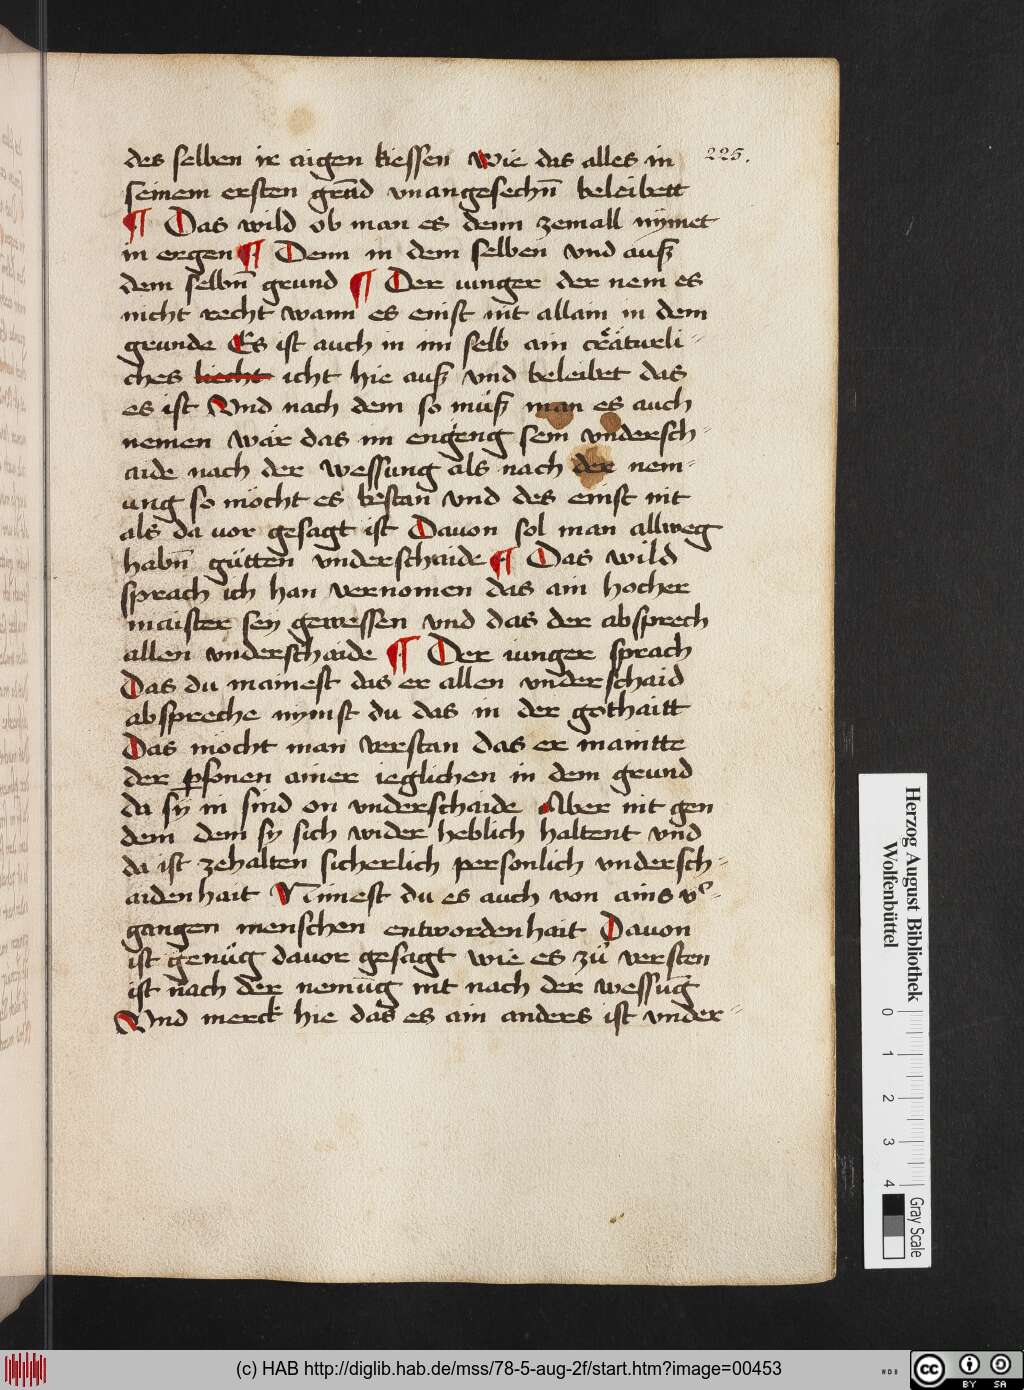 225.
des selben ir aigen kiessen wie das alles in
seinem ersten grād vnangesechn̄ beleibett
¶ Das wild ob man es denn zemall nÿmet
in ergen ¶ Denn in dem selben vnd auß
dem selbn̄ grund ¶ Der iunger der nem es
nicht recht wann es einst nit allain in dem
grunde Es ist auch in im selb ain creäturli-
ches liecht icht hie auß vnd beleibet das
es ist Vnd nach dem so müß man es auch
nemen wär das im engeng sein vndersch-
aide nach der wessung als nach der nem-
ung so möcht es bestan vnd des einst nit
als da vor gesagt ist Davon sol man allweg
habn̄ gütten vnderschaide ¶ Das wild
sprach ich han vernomen das ain hocher
maister seÿ gewessen vnd das der absprech
allen vnderschaide ¶ Der iunger sprach
Das du mainest das er allen vnderschaid
abspreche nÿmst du das in der gothaitt
Das möcht man verstan das er maintte
der ꝑsonen ainer ieglichen in dem grund
da sÿ in sind on vnderschaide Aber nit gen
dem dem sÿ sich wider heblich haltent vnd
da ist zehalten sicherlich personlich vndersch-
aidenhait Nimest du es auch von ains v͛-
gangen menschen entwordenhait Davon
ist genüg davor gesagt wie es zü versten
ist nach der nemūg nit nach der wessūg
Vnd merck hie das es ain anders ist vnder-
Herzog August Bibliothek
Wolfenbüttel
0 1 2 3 4
Gray Scale
(c) HAB http://diglib.hab.de/mss/78-5-aug-2f/start.htm?image=00453
WDB
cc BY SA